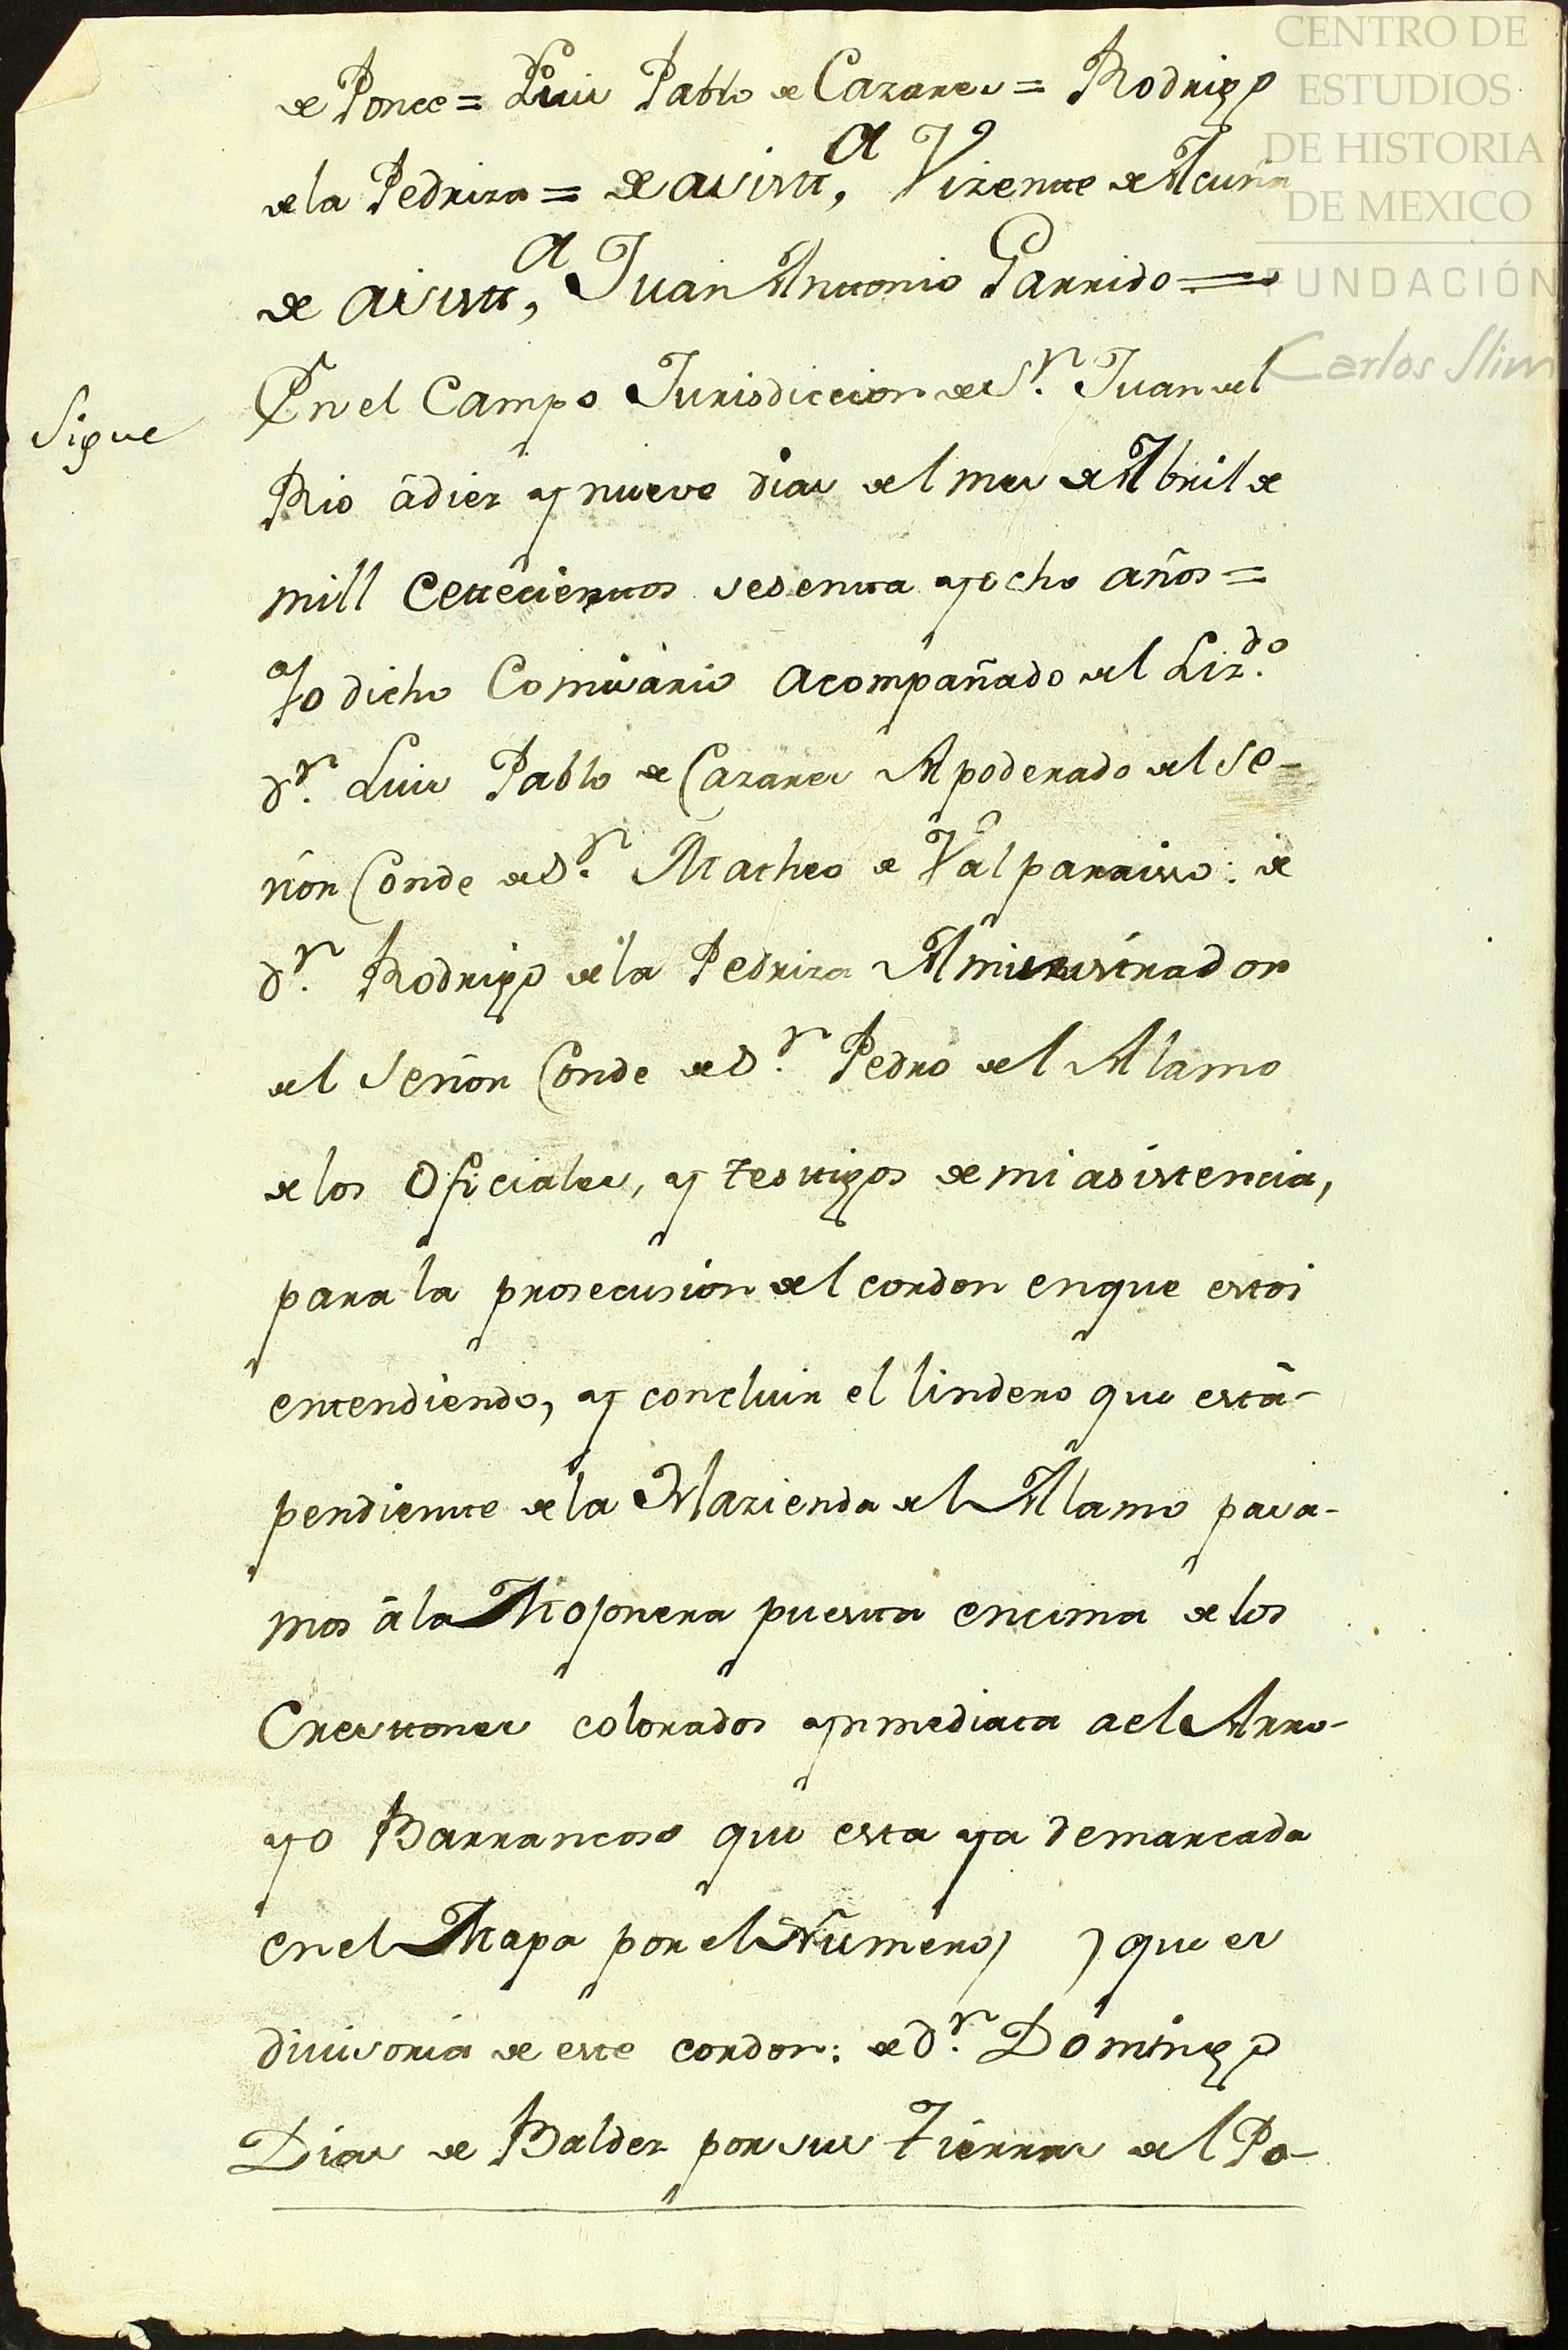 de Ponce = Luis Pablo de Cazares = Rodrigo
de la Pedriza = de asistt.ª Vizente de Acuña
de asistt.ª Juan Antonio Garrido =
Sigue
En el Campo Jurisdiccion de Sn. Juan del
Rio â diez y nueve dias del mes de Abril de
mill cettecienttos sesentta y ocho años =
Yo dicho Comisario acompañado del Lizdo.
dn. Luis Pablo de Cazares Apoderado del Se-
ñor Conde de Sn. Matheo de Valparaiso: de
dn. Rodrigo de la Pedriza Aministrador
del Señor Conde de Sn. Pedro del Alamo
de los Oficiales, y testtigos de mi asistencia,
para la prosecusion del cordon en que estoi
entendiendo, y concluir el lindero que estâ
pendientte de la Hazienda del Alamo pasa-
mos â la Mojonera puestta encima de los
Cresttones colorados ynmediata a el Arro-
yo Barrancoso que esta ya demarcada
en el Mapa por el Numero ) ) que es
divisoria de este cordon: de Dn. Domingo
Dias de Baldez por sus Tierras del Po-
CENTRO DE
ESTUDIOS
DE HISTORIA
DE MEXICO
FUNDACIÓN
Carlos Slim